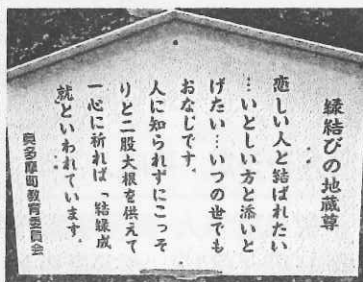 縁結びの地蔵尊
恋しい人と結ばれたい
…いとしい方と添いと
げたい…いつの世でも
おなじです。
人に知られずにこっそ
りと二股大根を供えて
一心に祈れば「結縁成
就といわれています。
奥多摩町教育委員会